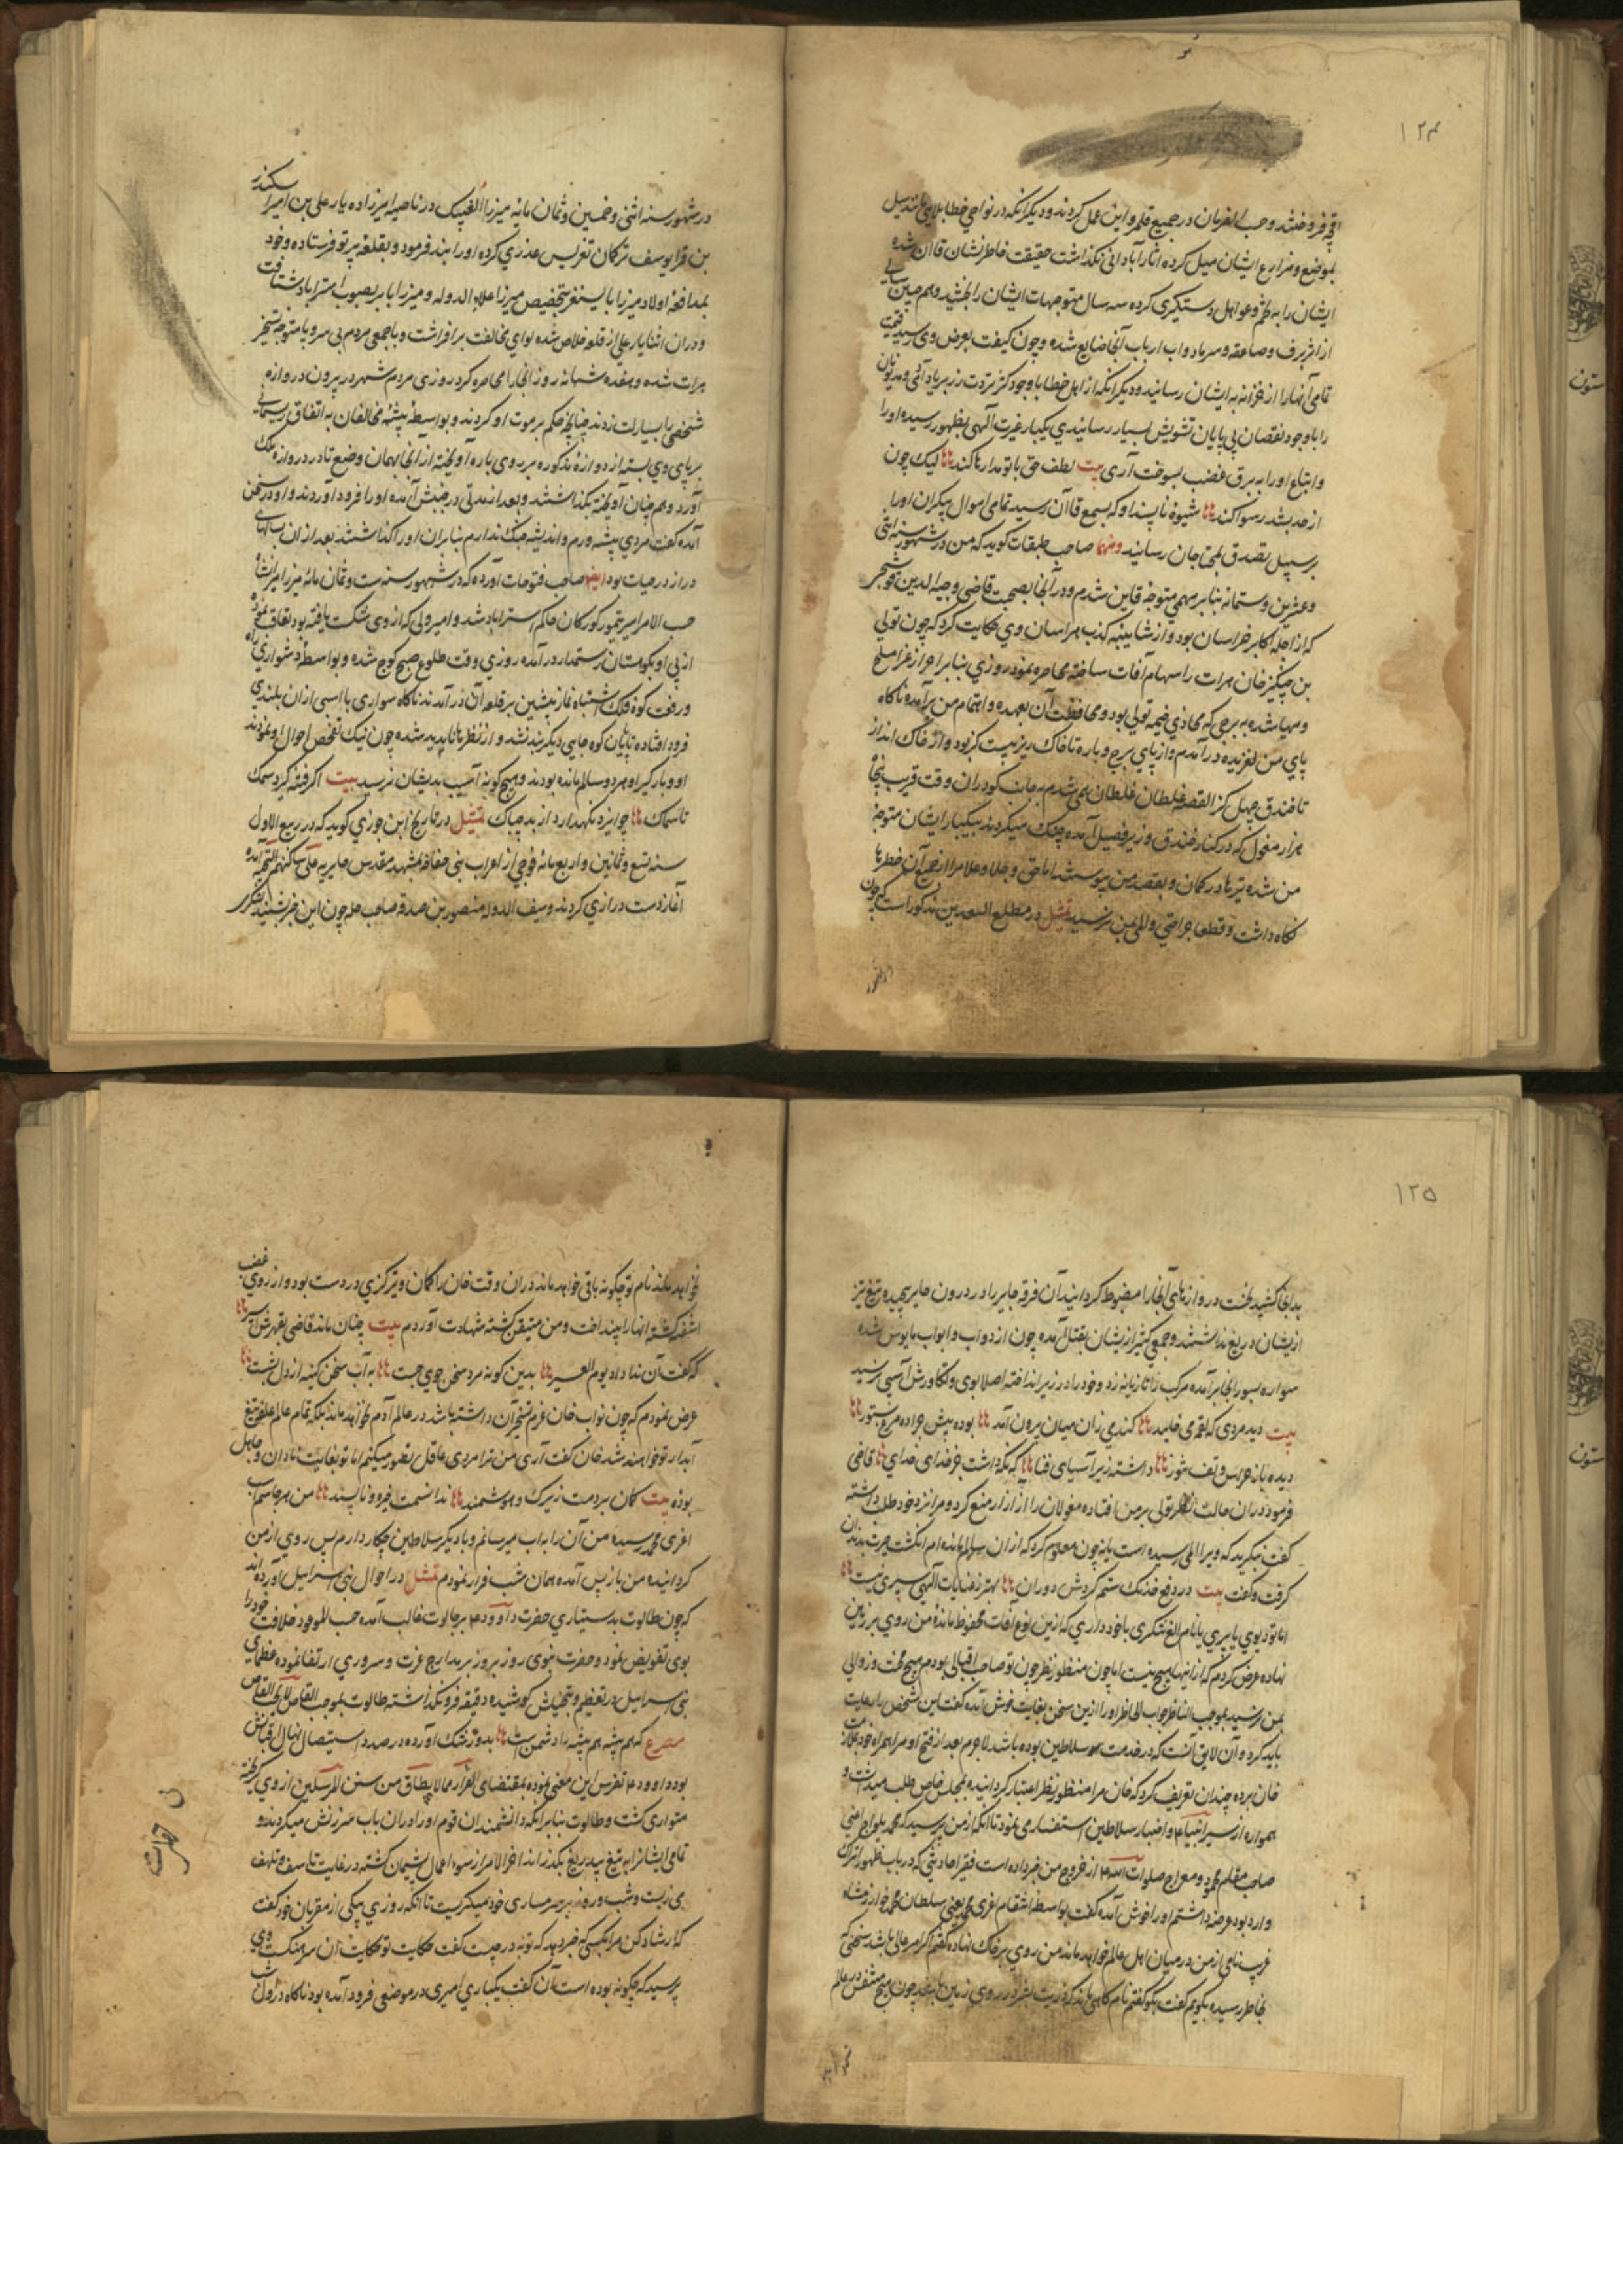 ١٢٤
در جمیع قلمرو این عمل کردند و دیگر آنکه در نواحی خطا
بموضع و مزارع ایشان میل کرده آثار آبادانی نگذاشت حقیقت خاطرنشان قاآن شده
ایشان را به تخم و عوامل دستگیری کرده سه سال متوجهات ایشان را بخشید و هم چنین
از اثر برف و صاعقه و سرما دواب ارباب آنجا ضایع شده و چون کیفیت بعرض وی رسید قیمت
تمامی آنها را از خزانه به ایشان رسانید و دیگر آنکه از اهل خطا با وجود
را با وجود نقصان بی پایان تشویش بسیار رسانیدی یکبار غیرت آلهی بظهور رسیده او را
و اتباع او را به برق غضب بسوخت آری بیت لطف حق با تو مداراها کند لیک چون
از حد بشد رسوا کند شیوهٔ ناپسند او که بسمع قاآن رسید تمامی اموال بیکران او را
بر سبیل تصدق بمحتاجان رسانید و منها صاحب طبقات گوید که من در شهور سنه اثنی
و عشرین و ستمائه بنا بر مهمی متوجه قاین شدم و در آنجا بصحبت قاضی وجیه الدین
که از اجلهٔ اکابر خراسان بود و از شایبهٔ کذب هراسان وی حکایت کرد که چون تولی
بن چنگیز خان هرات را سهام آفات ساخته محاصره نمود روزی بنا بر احراز غزا مسلح
و مهیا شده به برجی که محاذی خیمهٔ تولی بود و محافظت آن بعهده و اهتمام من برآمده ناگاه
پای من لغزیده در آمدم و از پای برج و باره تا خاک ریز بیست گز بود و از خاک انداز
تا خندق چهل گز القصه غلطان غلطان می شدم به جانب گو در آن وقت قریب پنجاه
هزار مغول که در کنار خندق و زیر فصیل آمده جنگ میکردند بیکبار ایشان متوجه
من شده تیرها در کمان و بقصد من پیوستند اما حق و جلا و علا مرا از جمیع آن خطرها
نگاه داشت و قطعا جراحتی و المی بمن نرسید تمثیل در مطلع السعدین مذکور است که چون
در شهور سنه اثنی و خمسین و ثمان مائه میرزا الغ بیک در ناصیه امیرزاده یار علی بن امیر اسکندر
بن قرا یوسف ترکمان تفرس عذری کرده او را بند فرمود و بقلعهٔ پرتو فرستاده و خود
بمدافعهٔ اولاد میرزا بایسنغر بتخصیص میرزا علاء الدوله و میرزا بابر بصوب استراباد شتافت
و در آن اثنا یار علی از قلعه خلاص شده لوای مخالفت برافراشت و با جمعی مردم بی سر و پا متوجه تسخیر
هرات شده و هفده شبانه روز آنجا را محاصره کرد روزی مردم شهر در بیرون دروازه
شخصی را بسیار لت زدند چنانچه حکم بر موت او کردند و بواسطهٔ بیشهٔ مخالفان به اتفاق ریسمانی
بر پای وی بسته از دروازهٔ مذکوره بر روی باره آویخته از آنجا بهمان وضع تا در دروازه ملک
آورد و هم چنان آویخته بگذاشتند و بعد از مدتی در جنبش آمده او را فرود آوردند و او در سخن
آمده گفت مردی پیشه ورم و اندیشه جنگ ندارم بنا بر آن او را گذاشتند بعد از آن سالهای
دراز در حیات بود ایضا صاحب فتوحات آورده که در شهور سنه ست و ثمان مائه میرزا میرانشاه
حسب الامر امیر تیمور کورکان حاکم استراباد شد و امیر ولی که از وی شکست یافته بود تعاقب نموده
از پی او بکوهستان رستمدار در آمده روزی وقت طلوع صبح کوچ شده و بواسطهٔ دشواری راه
و رفعت کوه فلک اشتباه نماز پیشین بر قلهٔ آن در آمدند ناگاه سواری با اسپی از آن بلندی
فرود افتاده تا پایان کوه جایی دیگر بند نشد و از نظرها ناپدید شده چون نیک تفحص احوال او نمودند
او و بارگیر او هر دو سالم مانده بودند و هیچ گونه آسیب بدیشان نرسید بیت اگر فتنه گیرد سمک
تا سماک چو ایزد نگهدارد از بد چه باک تمثیل در تاریخ ابن جوزی گوید که در ربیع الاول
سنه تسع و ثمانین و اربع مائه فوجی از اعراب بنی خفاجه بمشهد مقدس حایریه علی ساکنهم التحیه آمده
آغاز دست درازی کردند و سیف الدوله منصور بن صدقه صاحب حله چون این خبر شنید لشکری
١٢٥
بدانجا کشید نخست دروازهای آنجا را مضبوط گردانید آن فرقه جابر را در درون حایر پیچیده تیغ تیز
ازیشان دریغ نداشتند و جمعی کثیر ازیشان بقتال آمده چون از دواب و ابواب مایوس شده
سواره بسور آنجا برآمده مرکب را تازیانه زد و خود را در زیر انداخته اصلا بوی و تکاورش آسیبی نرسید
بیت دید مردی که لقمه می خایید کندمی زان میان برون آمد بوده پیش جراده مرغ ستور
دیده باز حراس و تف تنور داشته زیر آسیای فنا که نگه داشت جز خدای خدای قاضی
فرمود در آن حالت نظر تولی بر من افتاده مغولان را از آزار منع کرد و مرا نزد خود طلب داشته
گفت بنگرید که ویرا المی رسیده است یا نه چون معلوم کرد که از آن سالم مانده ام انگشت حیرت بدندان
گرفت و گفت بیت در دفع خدنک ستم گردش دوران بهتر ز عنایات آلهی سپری نیست
اما تو دیوی یا پری یا نام الغ تنگری با خود داری که ازین نوع آفات محفوظ ماندهٔ من روی بر زمین
نهاده عرض کردم که از اینها هیچ نیست اما چون منظور نظر چون تو صاحب اقبالی بودم هیچ محنت و زوالی
بمن نرسید بموجب المناظر جواب الخاطر او را ازین سخن بغایت خوش آمده گفت این شخص را رعایت
باید کرد و آن لایق آنست که در خدمت سلاطین بوده باشد لاجرم بعد از فتح او مرا همراه خود بملازمت
خان برده چندان تعریف کرد که خان مرا منظور نظر اعتبار گردانیده بمجلس خاص طلب میداشت و
همواره از سیر انبیاء و اخبار سلاطین استفساری نمود تا آنکه از من پرسید که محمد یلواج یعنی
صاحب مقام محمود و معراج صلوات الله از خروج من خبر داده است فقیر احادیثی که در باب ظهور اتراک
وارد بود عرضه داشتم او را خوش آمده گفت بواسطهٔ انتقام اغری محمد یعنی سلطان محمد خوارزمشاه
غریب نامی از من در میان اهل عالم خواهد ماند من روی بر خاک نهاده گفتم اگر امر عالی باشد سخنی که
بخاطر رسیده بگویم گفت بگو گفتم نام گاهی ماند که ذریت بشر در روی زمین باشد چون هیچ متنفس در عالم
نخواهد ماند نام تو چگونه باقی خواهد ماند در آن وقت خان را کمان و تیر گزی در دست بود و از روی غضب
آشفته گشته آنها را بینداخت و من متیقن گشته شهادت آوردم بیت چنان ماند قاضی بقهرش اسیر
که گفت آن ندا داد یوم العسیر بدین گونه مرد سخن جوی جست به آب سخن کینه از دل بشست
عرض نمودم که چون نواب خان عزم تسخیر آن داشته باشد در عالم آدم نخواهد ماند بلکه تمام عالم علف تیغ
آبدار تو خواهند شد خان گفت آری من ترا مردی عاقل تصور میکنم اما تو بغایت نادان و جاهل
بوده بیت گمان بردمت زیرک و هوشمند ندانستمت خیره و ناپسند من هر جا سم اسپ
اغری محمد رسیده من آن را به آب میرسانم و با دیگر سلاطین چکار دارم پس روی از من
گردانیده من باز پس آمده همان شب فرار نمودم تمثیل در احوال بنی اسرائیل آورده اند
که چون طالوت بدستیاری حضرت داوود بر جالوت غالب آمده حسب الموعود خلافت خود را
بوی تفویض نمود و حضرت نبوی روز بروز بر مدارج عزت و سروری ارتقا نموده عظمای
بنی اسرائیل در تعظیم و تبجیلش کوشیده دقیقه فرو نگذاشته طالوت بموجب القاص لا یحب القاص
مصرع که هم پیشه هم پیشه را دشمن است بدو رشک آورده در صدد استیصال نهال اقبالش
بود داوود تفرس این معنی نموده بمقتضای الفرار مما لا یطاق من سنن المرسلین از وی گریخته
متواری گشت و طالوت بنا بر آنکه دانشمندان قوم او را در آن باب سرزنش میکردند و
تمامی ایشان را به تیغ بیدریغ بگذراند آخر الامر از سوء اعمال پشیمان گشته در غایت تاسف و تلهف
می زیست و شب و روز بر خود میگریست تا آنکه روزی بیکی از مقربان خود گفت
که ارشاد کن مرا بکسی که خبر دهد که توبه در چیست گفت حکایت تو حکایت آن سرهنگ است وی
پرسید که چگونه بوده است آن گفت یکباری امیری در موضعی فرود آمده بود ناگاه در اول شب
ستون
ستون